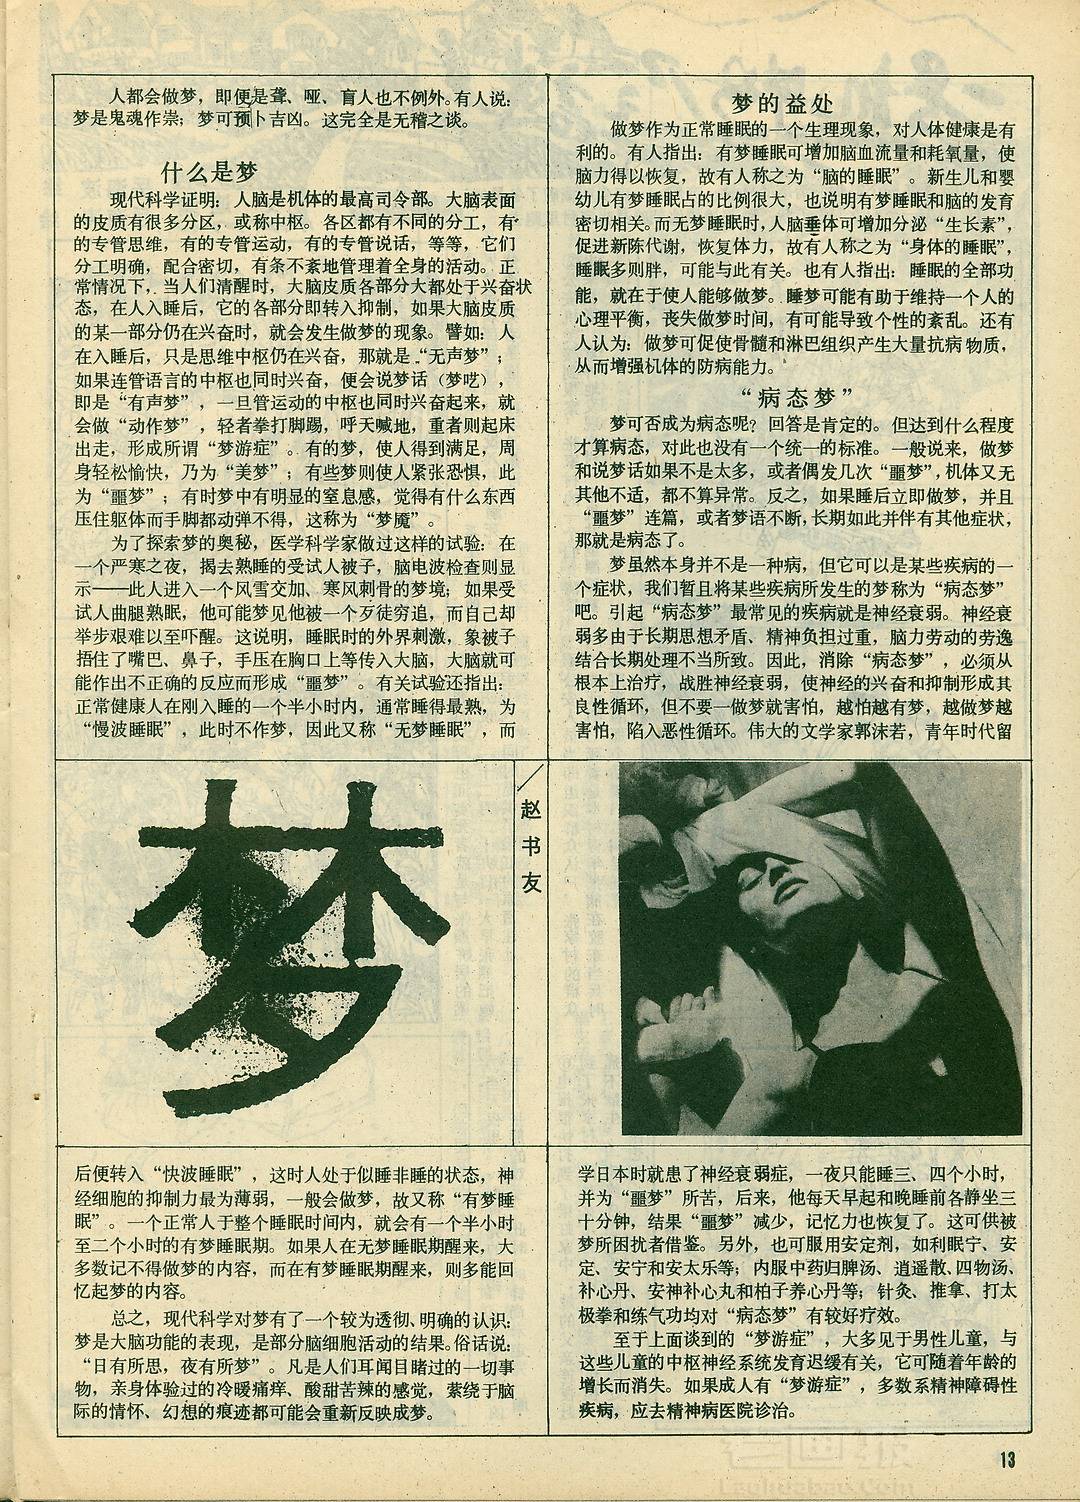 人都会做梦，即便是聋、哑、盲人也不例外。有人说：
梦是鬼魂作祟；梦可预卜吉凶。这完全是无稽之谈。
什么是梦
现代科学证明：人脑是机体的最高司令部。大脑表面
的皮质有很多分区，或称中枢。各区都有不同的分工，有
的专管思维，有的专管运动，有的专管说话，等等，它们
分工明确，配合密切，有条不紊地管理着全身的活动。正
常情况下，当人们清醒时，大脑皮质各部分大都处于兴奋状
态，在人入睡后，它的各部分即转入抑制，如果大脑皮质
的某一部分仍在兴奋时，就会发生做梦的现象。譬如：人
在入睡后，只是思维中枢仍在兴奋，那就是“无声梦”；
如果连管语言的中枢也同时兴奋，便会说梦话（梦呓），
即是“有声梦”，一旦管运动的中枢也同时兴奋起来，就
会做“动作梦”，轻者拳打脚踢，呼天喊地，重者则起床
出走，形成所谓“梦游症”。有的梦，使人得到满足，周
身轻松愉快，乃为“美梦”；有些梦则使人紧张恐惧，此
为“噩梦”；有时梦中有明显的窒息感，觉得有什么东西
压住躯体而手脚都动弹不得，这称为“梦魇”。
为了探索梦的奥秘，医学科学家做过这样的试验：在
一个严寒之夜，揭去熟睡的受试人被子，脑电波检查则显
示——此人进入一个风雪交加、寒风刺骨的梦境；如果受
试人曲腿熟眠，他可能梦见他被一个歹徒穷追，而自己却
举步艰难以至吓醒。这说明，睡眠时的外界刺激，象被子
捂住了嘴巴、鼻子，手压在胸口上等传入大脑，大脑就可
能作出不正确的反应而形成“噩梦”。有关试验还指出：
正常健康人在刚入睡的一个半小时内，通常睡得最熟，为
“慢波睡眠”，此时不作梦，因此又称“无梦睡眠”，而
梦
赵书友
后便转入“快波睡眠”，这时人处于似睡非睡的状态，神
经细胞的抑制力最为薄弱，一般会做梦，故又称“有梦睡
眠”。一个正常人于整个睡眠时间内，就会有一个半小时
至二个小时的有梦睡眠期。如果人在无梦睡眠期醒来，大
多数记不得做梦的内容，而在有梦睡眠期醒来，则多能回
忆起梦的内容。
总之，现代科学对梦有了一个较为透彻、明确的认识：
梦是大脑功能的表现，是部分脑细胞活动的结果。俗话说：
“日有所思，夜有所梦”。凡是人们耳闻目睹过的一切事
物，亲身体验过的冷暖痛痒、酸甜苦辣的感觉，萦绕于脑
际的情怀、幻想的痕迹都可能会重新反映成梦。
梦的益处
做梦作为正常睡眠的一个生理现象，对人体健康是有
利的。有人指出：有梦睡眠可增加脑血流量和耗氧量，使
脑力得以恢复，故有人称之为“脑的睡眠”。新生儿和婴
幼儿有梦睡眠占的比例很大，也说明有梦睡眠和脑的发育
密切相关。而无梦睡眠时，人脑垂体可增加分泌“生长素”，
促进新陈代谢，恢复体力，故有人称之为“身体的睡眠”，
睡眠多则胖，可能与此有关。也有人指出：睡眠的全部功
能，就在于使人能够做梦。睡梦可能有助于维持一个人的
心理平衡，丧失做梦时间，有可能导致个性的紊乱。还有
人认为：做梦可促使骨髓和淋巴组织产生大量抗病物质，
从而增强机体的防病能力。
“病态梦”
梦可否成为病态呢？回答是肯定的。但达到什么程度
才算病态，对此也没有一个统一的标准。一般说来，做梦
和说梦话如果不是太多，或者偶发几次“噩梦”，机体又无
其他不适，都不算异常。反之，如果睡后立即做梦，并且
“噩梦”连篇，或者梦语不断，长期如此并伴有其他症状，
那就是病态了。
梦虽然本身并不是一种病，但它可以是某些疾病的一
个症状，我们暂且将某些疾病所发生的梦称为“病态梦”
吧。引起“病态梦”最常见的疾病就是神经衰弱。神经衰
弱多由于长期思想矛盾、精神负担过重，脑力劳动的劳逸
结合长期处理不当所致。因此，消除“病态梦”，必须从
根本上治疗，战胜神经衰弱，使神经的兴奋和抑制形成其
良性循环，但不要一做梦就害怕，越怕越有梦，越做梦越
害怕，陷入恶性循环。伟大的文学家郭沫若，青年时代留
学日本时就患了神经衰弱症，一夜只能睡三、四个小时，
并为“噩梦”所苦，后来，他每天早起和晚睡前各静坐三
十分钟，结果“噩梦”减少，记忆力也恢复了。这可供被
梦所困扰者借鉴。另外，也可服用安定剂，如利眠宁、安
定、安宁和安太乐等；内服中药归脾汤、逍遥散、四物汤、
补心丹、安神补心丸和柏子养心丹等；针灸、推拿、打太
极拳和练气功均对“病态梦”有较好疗效。
至于上面谈到的“梦游症”，大多见于男性儿童，与
这些儿童的中枢神经系统发育迟缓有关，它可随着年龄的
增长而消失。如果成人有“梦游症”，多数系精神障碍性
疾病，应去精神病医院诊治。
13
老画报
Laohuabao.Com